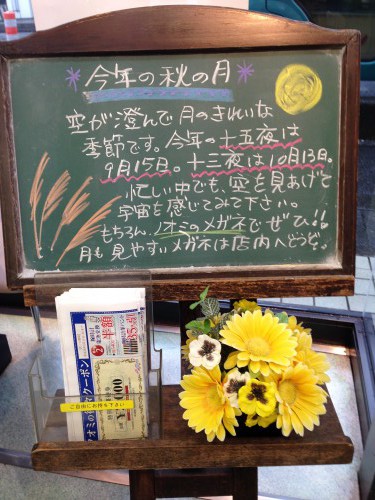 今年の秋の月
空が澄んで月のきれいな
季節です。今年の十五夜は
9月15日。十三夜は10月13日。
忙しい中でも、空を見あげて
宇宙を感じてみて下さい。
もちろん、ノオミのメガネでぜひ!!
月も見やすいメガネは店内へどうぞ。
半額
クーポン
ご自由にお持ち下さい